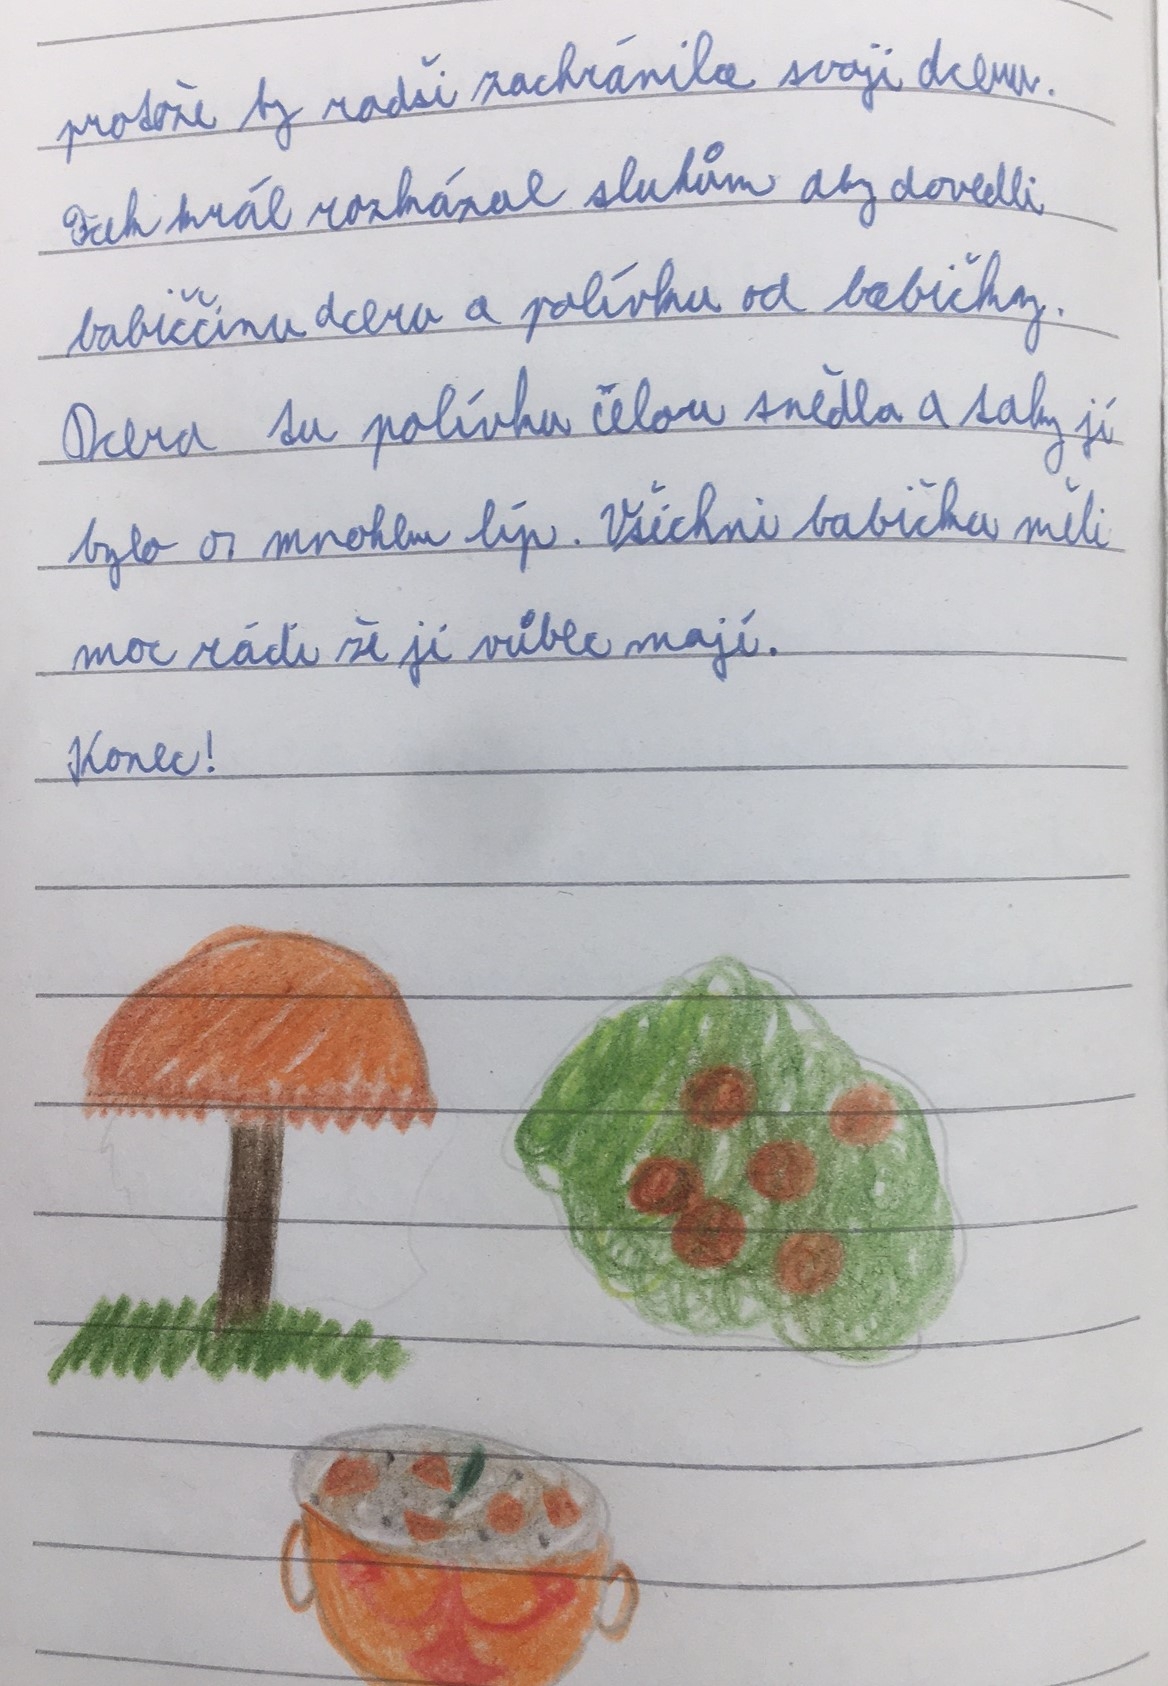 protože by radši zachránila svoji dceru.
Tak král rozkázal sluhům aby dovedli
babiččinu dceru a polívku od babičky.
Dcera tu polívku čelou snědla a taky jí
bylo o mnohem líp. Všichni babičku měli
moc rádi že jí vůbec mají.
Konec!